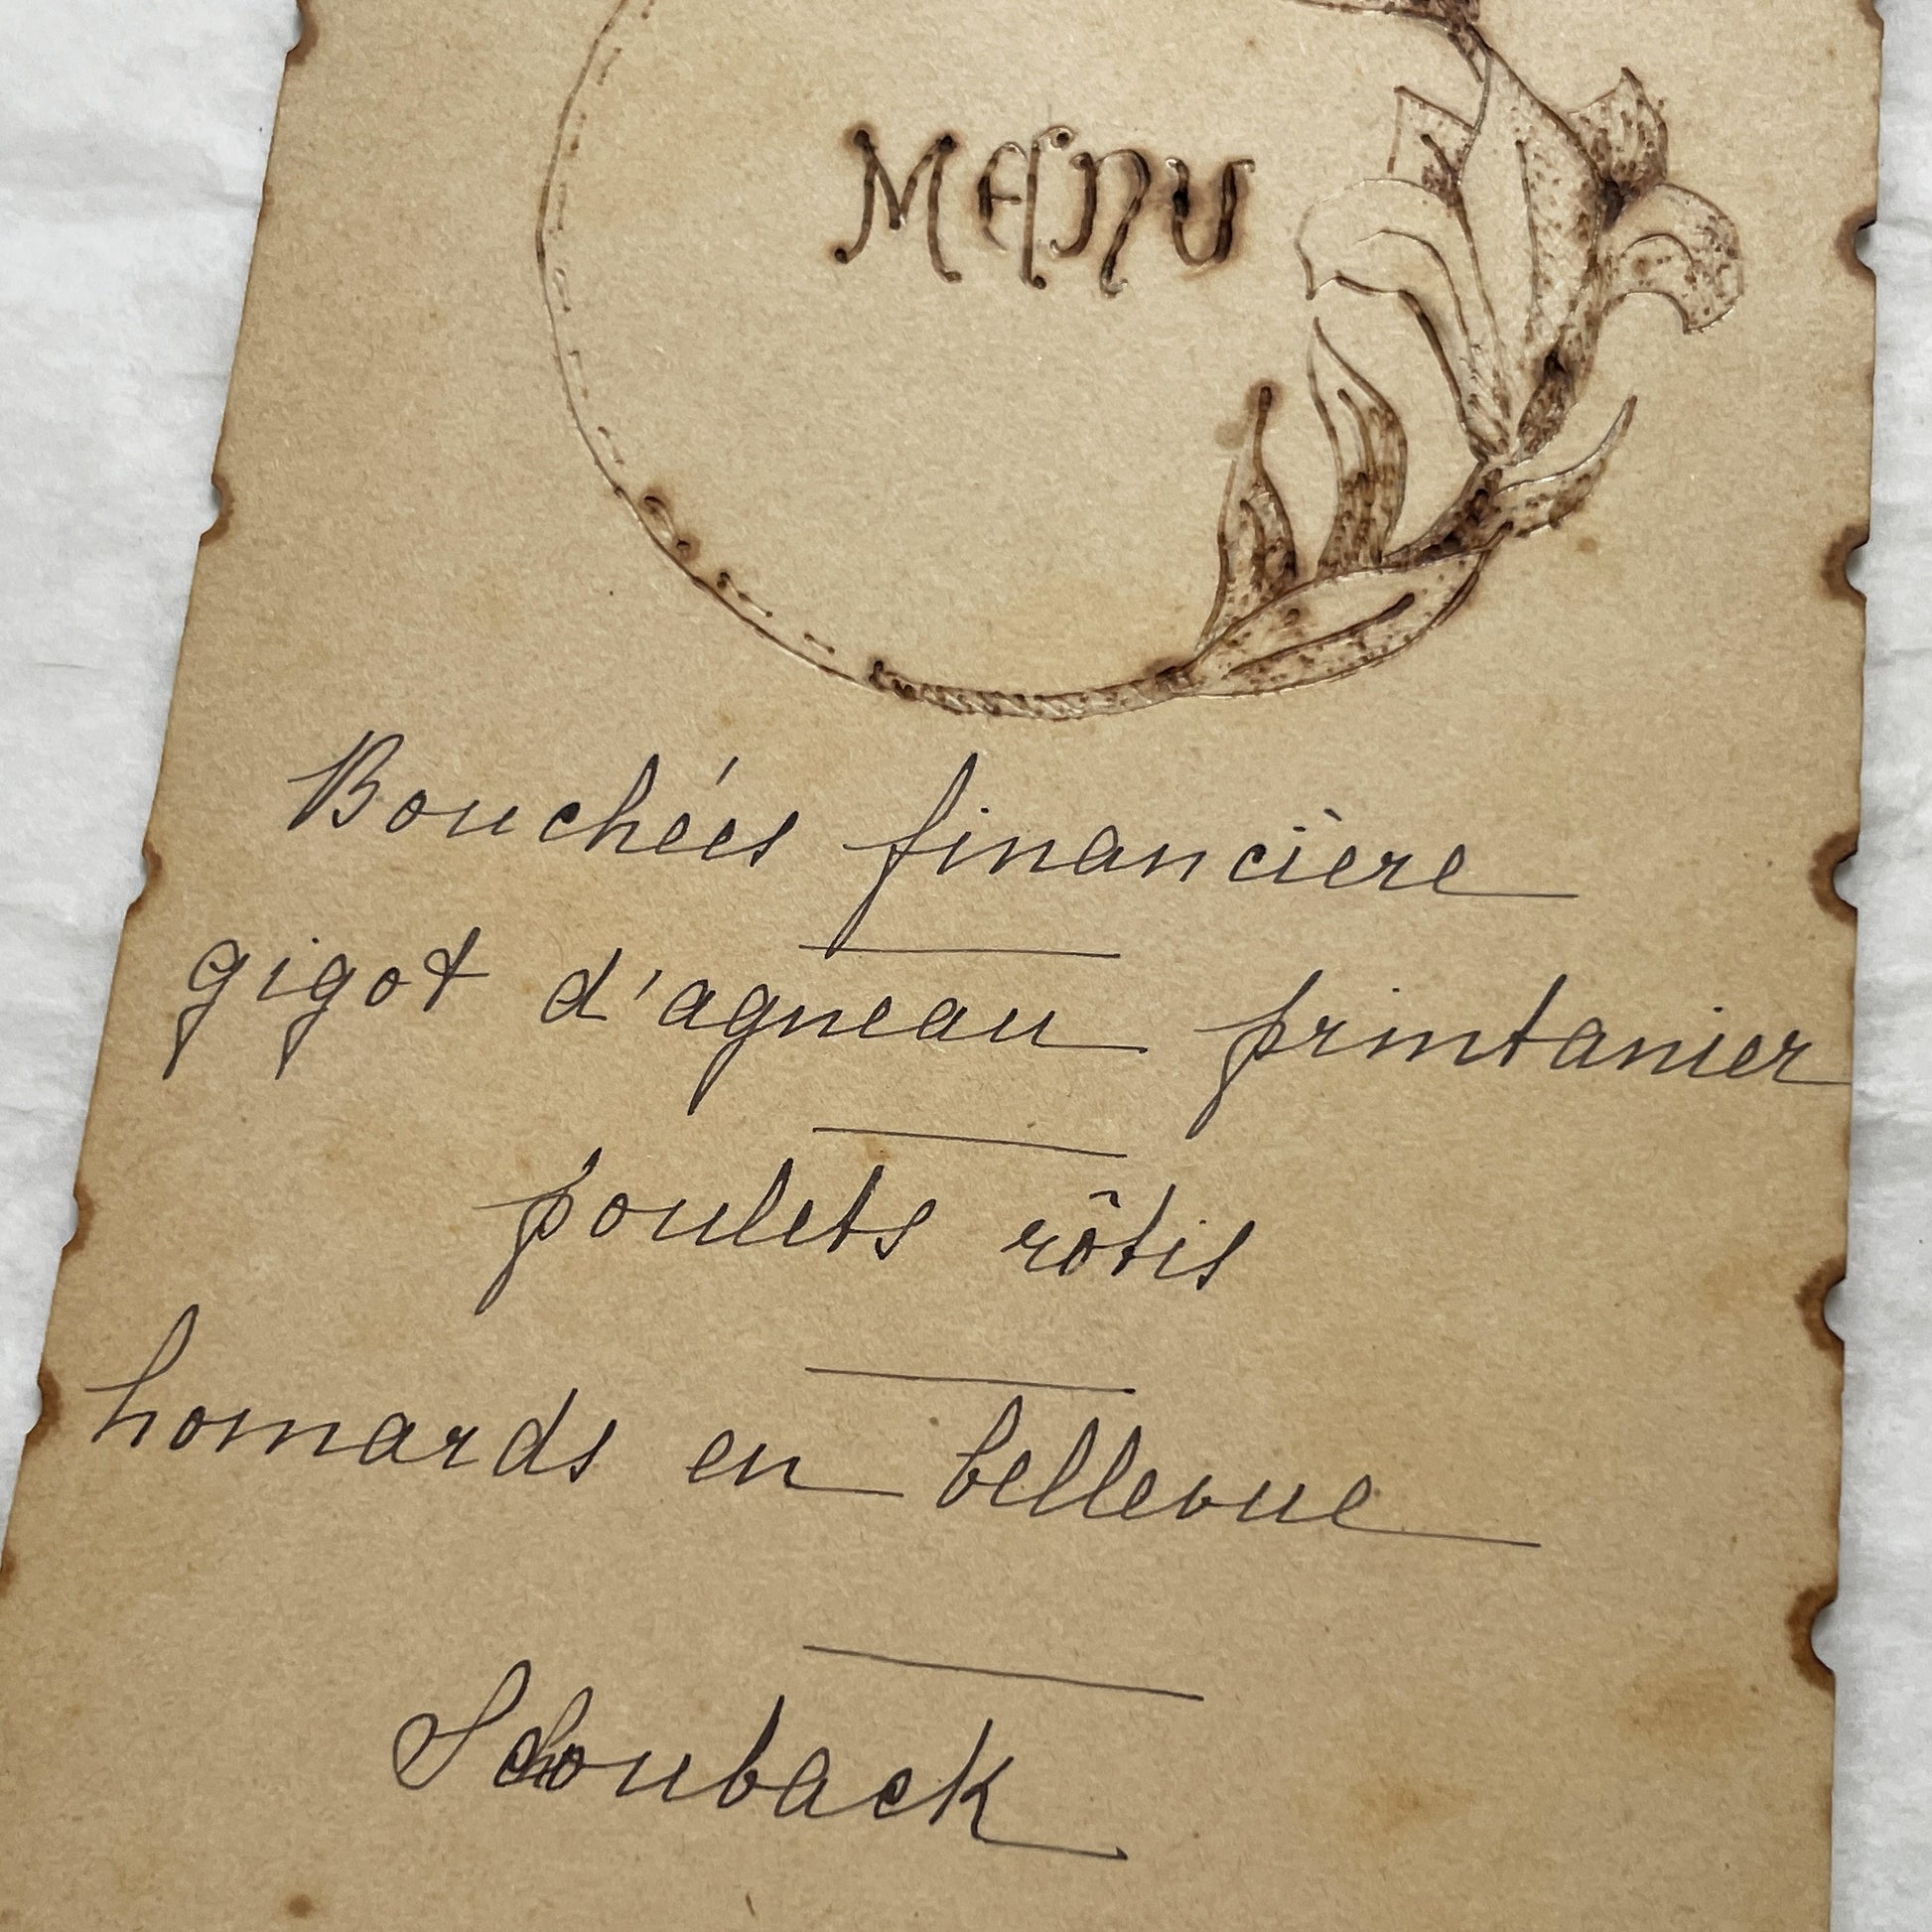 MENU
Bouchées financière
gigot d'agneau printanier
poulets rôtis
homards en bellevue
Schouback